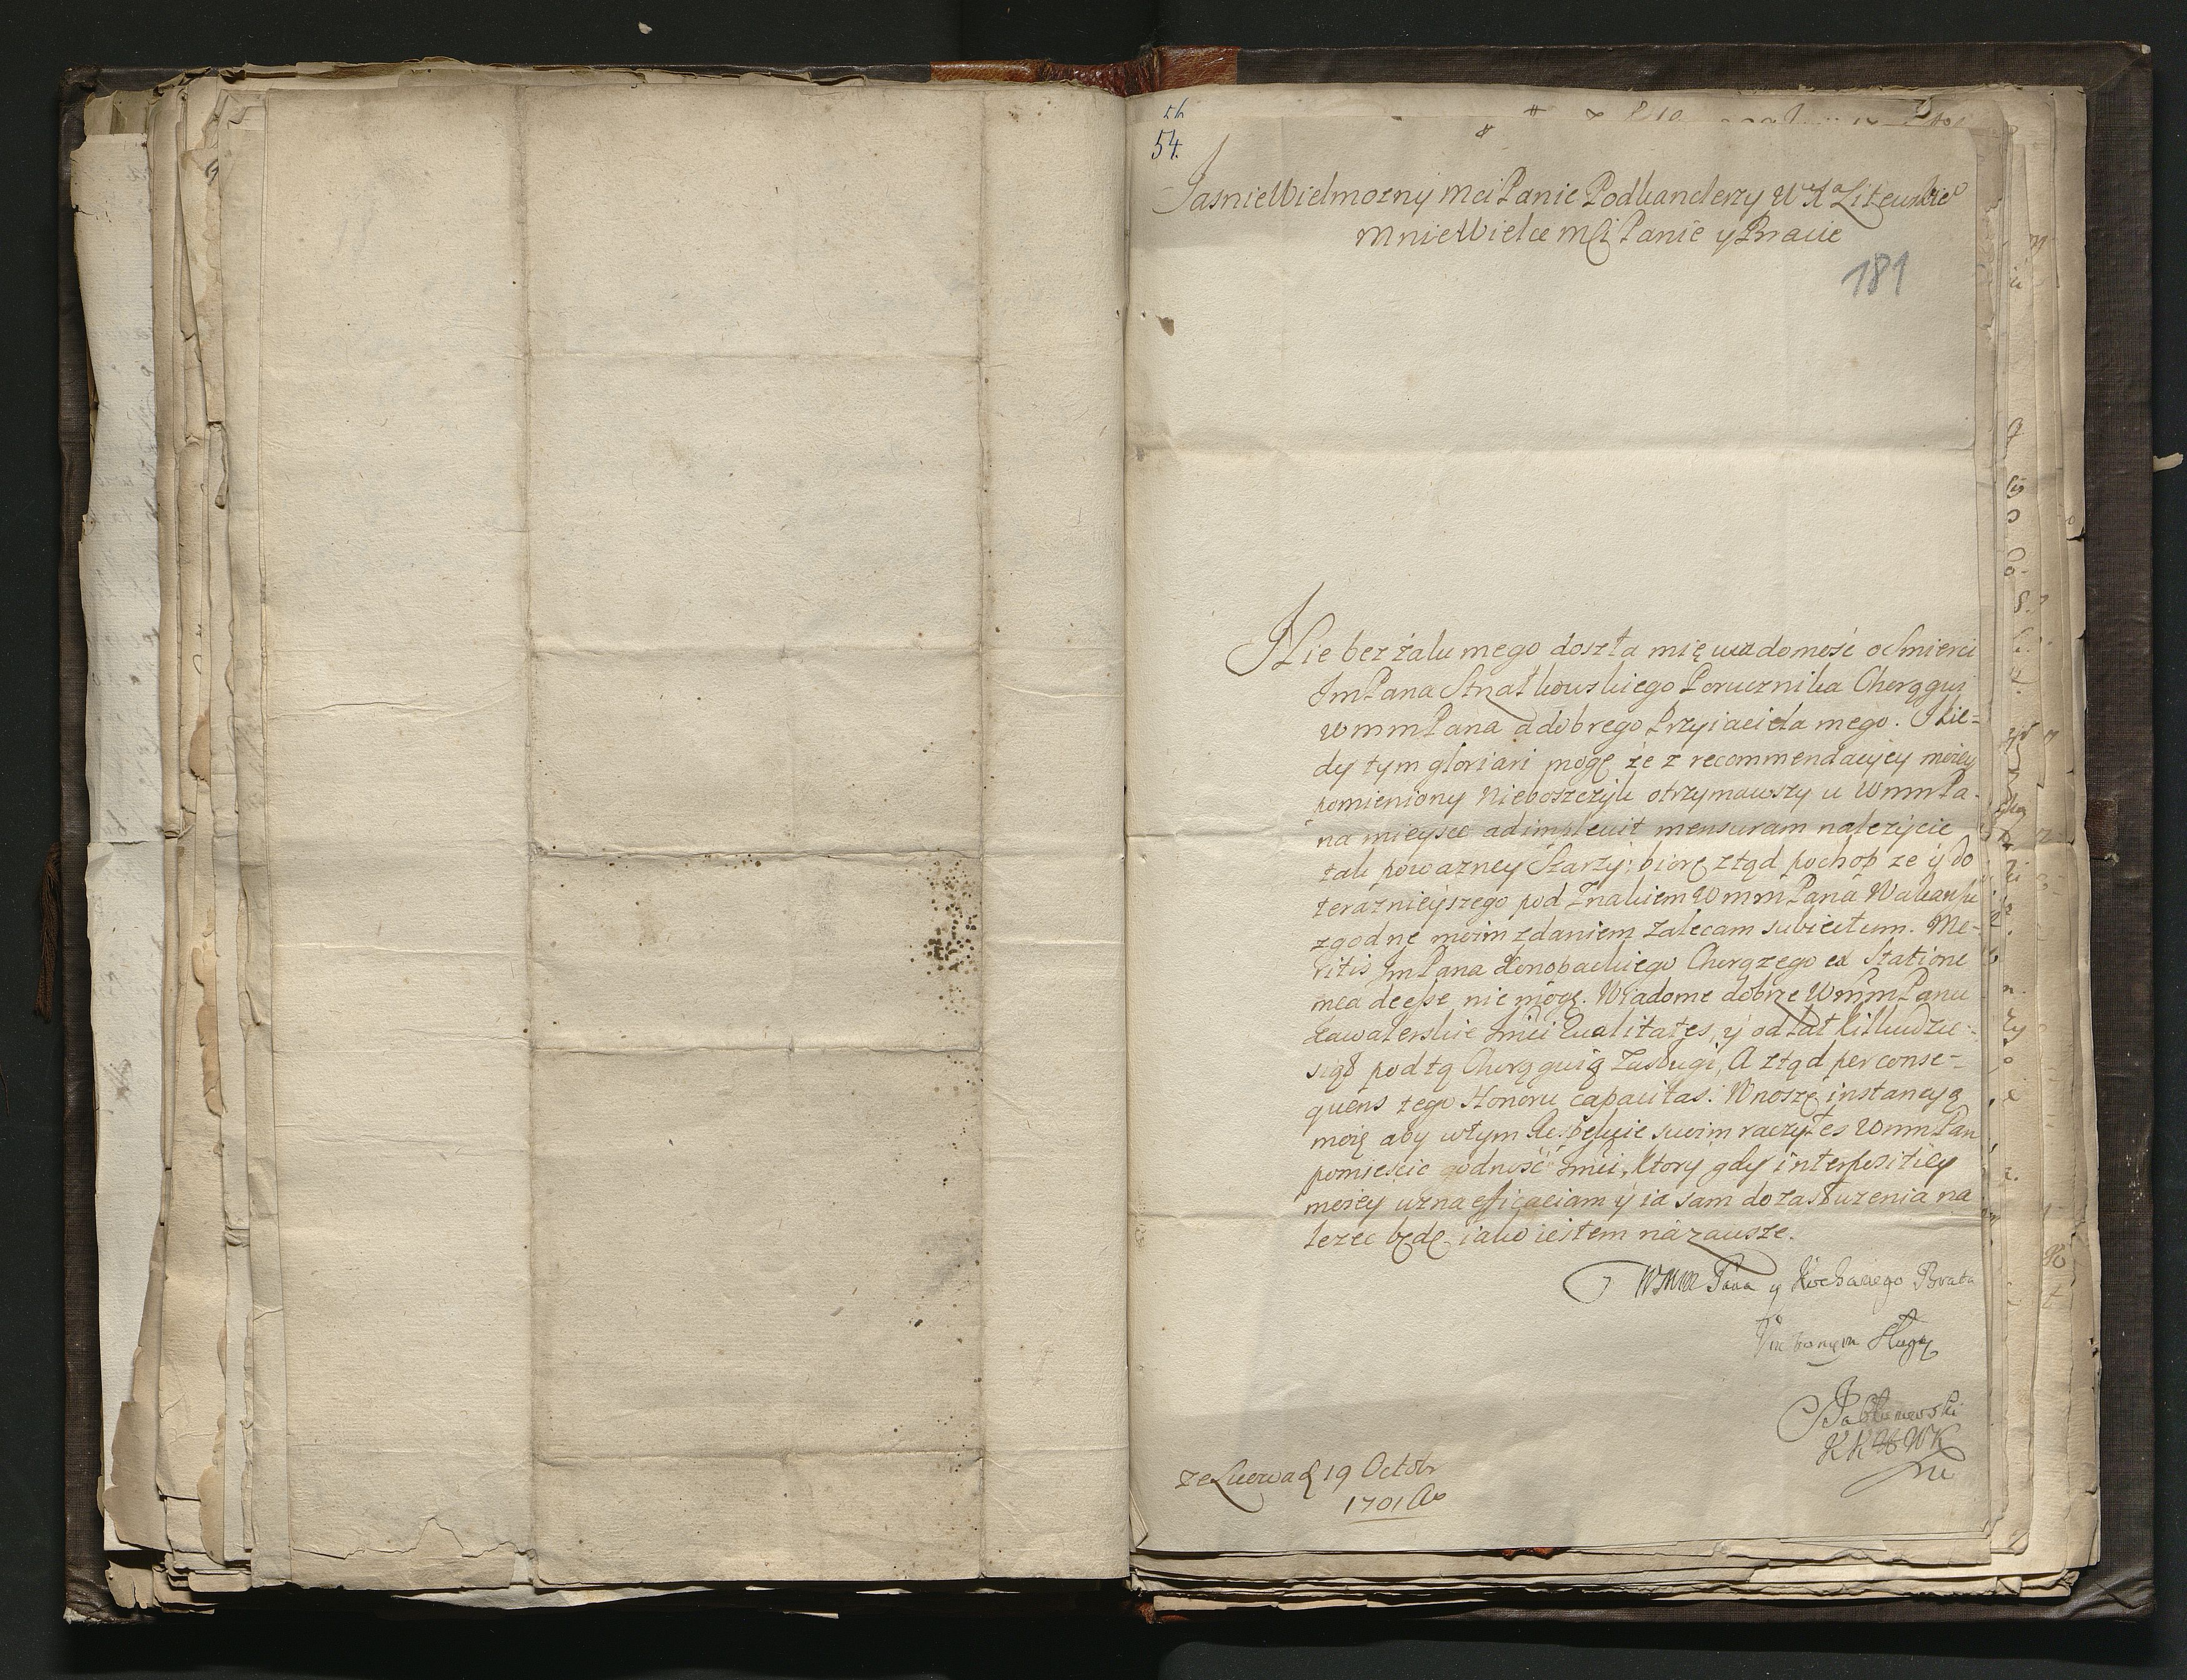 54
54.
Jasnie Wielmozny Mci Panie Podkanclerzy WXa Litewskieo
Mnie Wielce Mci Panie y Bracie
181
Nie bez żalu mego doszła mię wiadomość o Smierci
Jm Pana Strzałkowskiego Porucznika Chorągwi
WmmPana a dobrego Przyiaciela mego. Kie-
dy tym gloriari mogę że z recommendacyey moiey
pomieniony Nieboszczyk otrzymawszy u WmmPa-
na mieysce adimplevit mensuram należycie
tak poważney Starży; biorę ztąd pochop ze y do
teraznieyszego pod Znakiem WmmPana Wakansu
zgodne moim zdaniem zalecam subiectum. Me-
ritis Jm Pana Konopackiego Chorązego ex Statione
mea deesse nie mogę. Wiadome dobrze WmmPanu
Kawalerskie Jmci Qualitates, y od lat kilkudzie-
siąt pod tą Chorągwią Zasługi, A ztąd per conse-
quens tego Honoru capacitas. Wnoszę instancyą
moię aby wtym Respekcie swoim raczyłes WmmPan
pomiescic godność Jmci, Ktory gdy interpositiey
moiey uzna efficaciam y ia sam do zasłuzenia na
lezec będę iako iestem nazawsze.
WMM Pana y Kochanego Brata
Sługą
Jabłonowski
KKWWK
mp
Ze Lwowa d 19 Octobr
1701 Ao